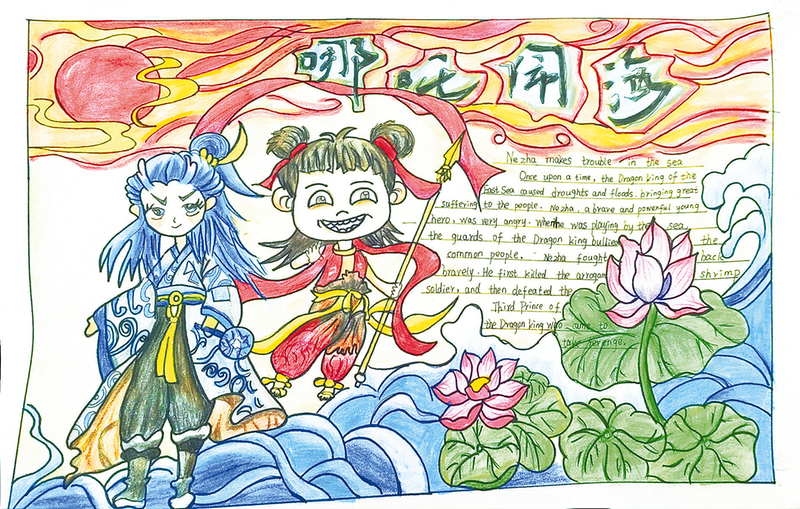 哪吒闹海
Nezha makes trouble in the sea
Once upon a time, the Dragon king of the
East Sea caused droughts and floods. bringing great
suffering to the people. Nezha, a brave and powerful young
hero, was very angry. When he was playing by the sea.
the guards of the Dragon king bullied the
common people. Nezha fought back
bravely. He first killed the arrogan shrimp
soldier, and then defeated the
Third Prince of
the Dragon king who came to
take revenge.